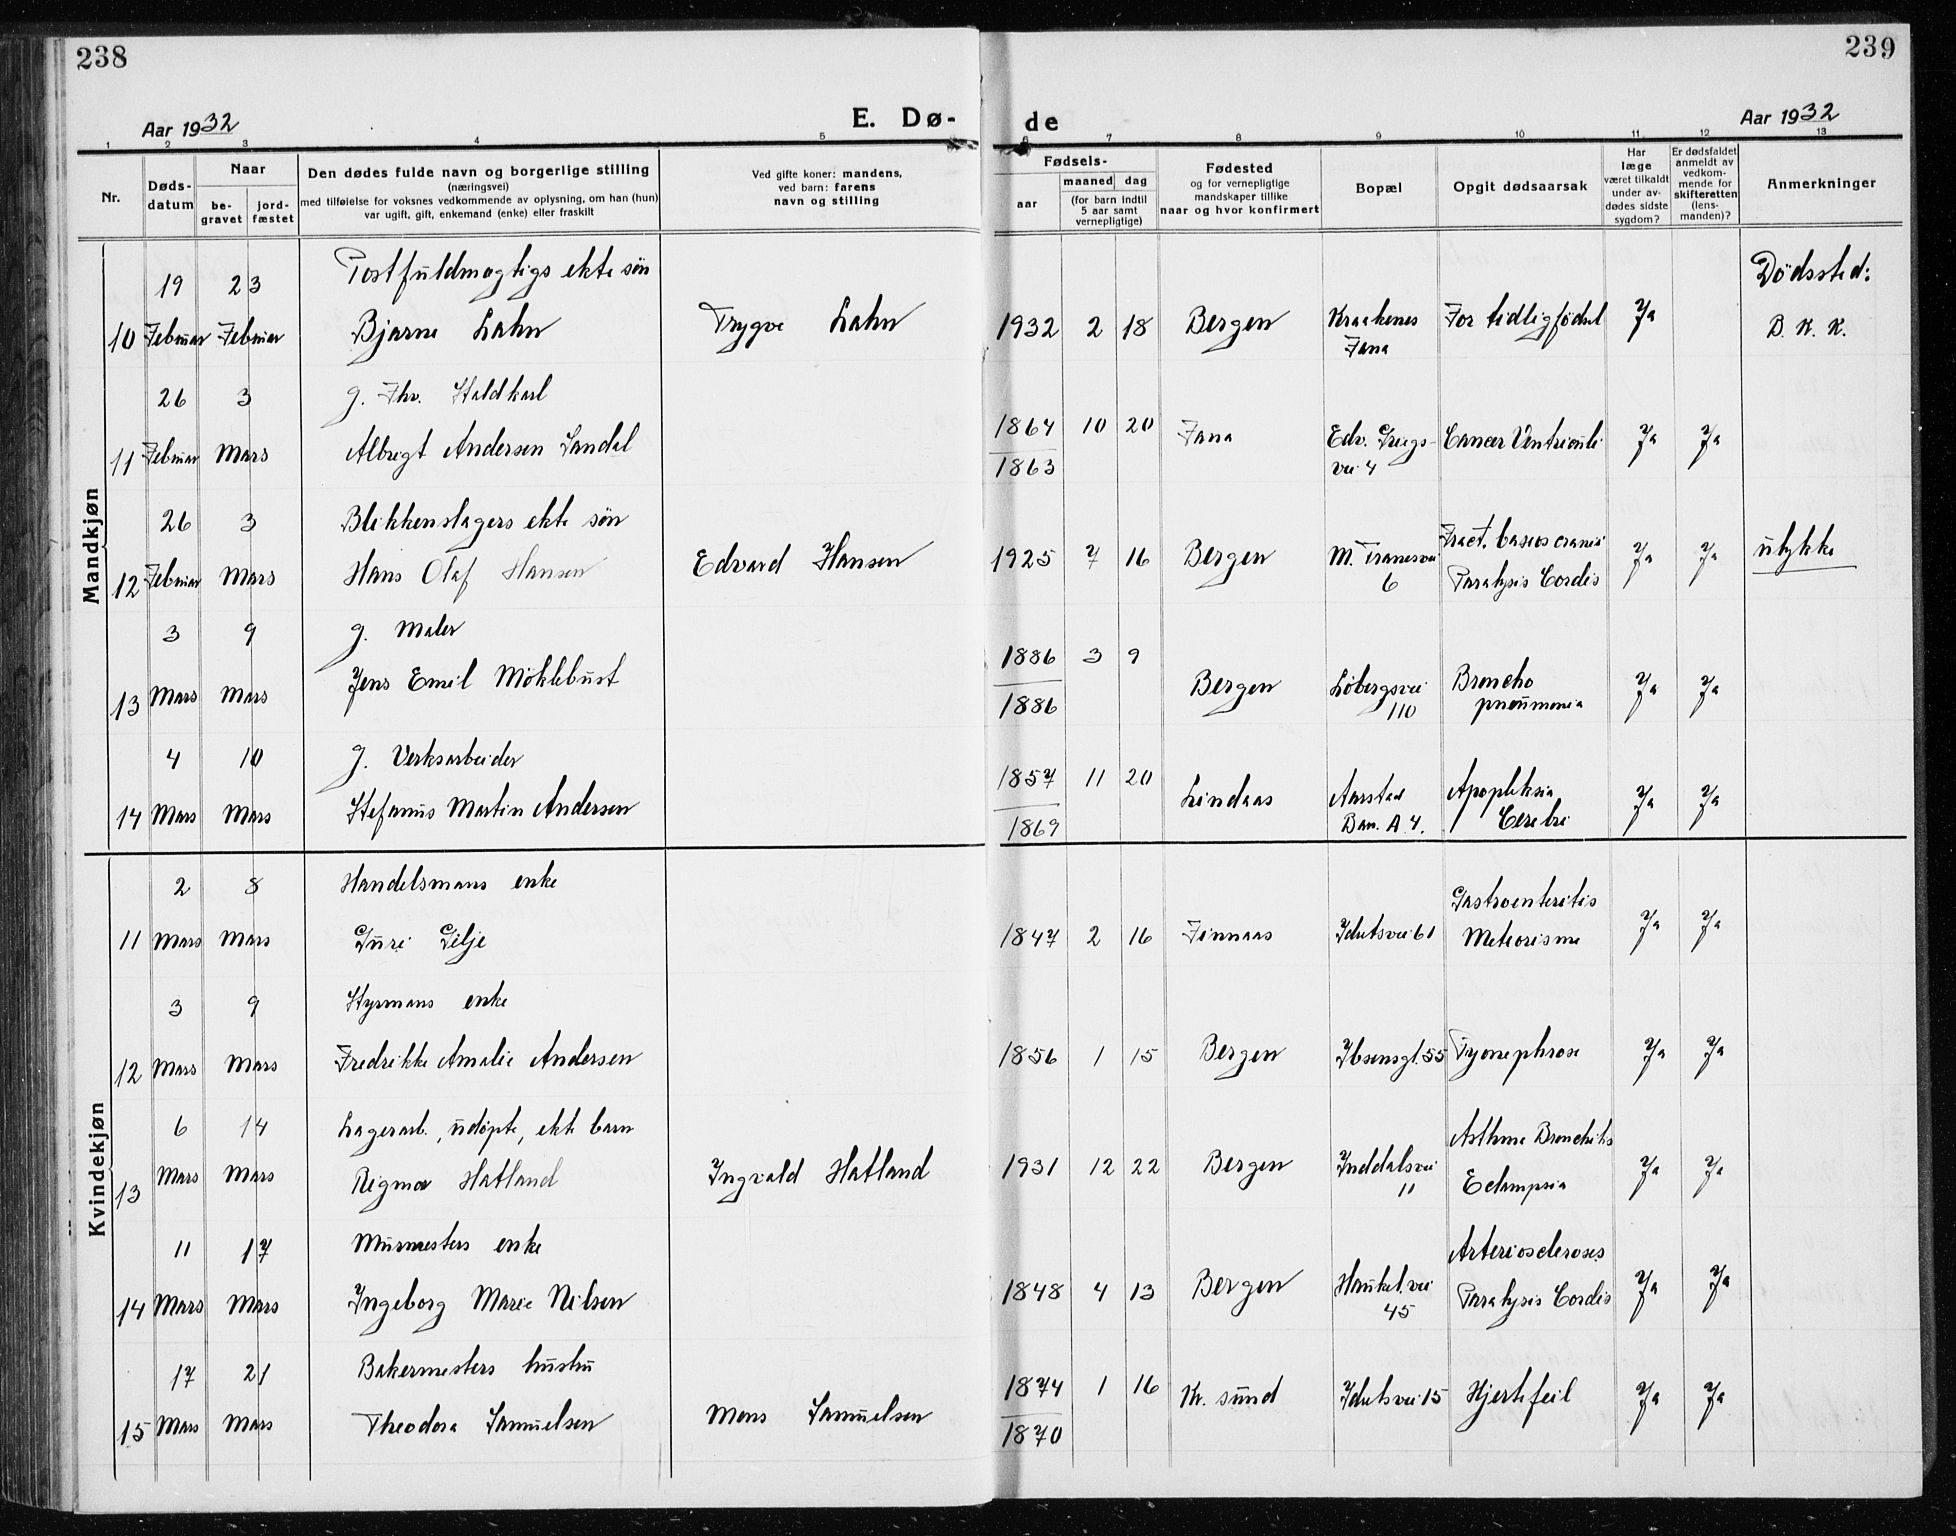 238
239
Aar 1932
E. Dø-
de
Aar 1932
1 2 3 4 5 6 7 8 9 10 11 12 13
Nr.
Døds-
datum
Naar
be-
gravet
jord-
fæstet
Den dødes fulde navn og borgerlige stilling
(næringsvei)
med tilføielse for voksnes vedkommende av oplysning, om han (hun)
var ugift, gift, enkemand (enke) eller fraskilt
Ved gifte koner: mandens,
ved barn: farens
navn og stilling
Fødsels-
aar
maaned dag
(for barn indtil
5 aar samt
vernepligtige)
Fødested
og for vernepligtige
mandskaper tillike
naar og hvor konfirmert
Bopæl
Opgit dødsaarsak
Har
læge
været tilkaldt
under av-
dødes sidste
sygdom?
Er dødsfaldet
anmeldt av
vedkom-
mende for
skifteretten
(lens-
manden)?
Anmerkninger
Mandkjøn
19 23 Postfuldmagtigs ekte søn Dödssted:
10 Februar Februar Bjarne Lahn Trygve Lahn 1932 2 18 Bergen Kraakenes For tidlig født Ja B. K. K.
Fana
26 3 g. Fhv. Staldkarl
11 Februar Mars Albregt Andersen Sandal 1864 10 20 Fana Edv. Griegs- Cancer Ventriculi Ja Ja
1863 vei 4
26 3 Blikkenslagers ekte søn Fract. baseos cranii
12 Februar Mars Hans Olaf Hansen Edvard Hansen 1925 7 16 Bergen M. Tranesvei Ja Ja ulykke
6 Paralysis Cordis
3 9 g. Maler 1886 3 9
13 Mars Mars Jens Emil Möklebust 1886 Bergen Löbergsvei Broncho Ja Ja
110 pneumonia
4 10 g. Verksarbeider 1857 11 20
14 Mars Mars Stefanus Martin Andersen 1869 Lindaas Aarstad Apopleksia Ja Ja
Bar. A 4. Cerebri
Kvindekjøn
2 8 Handelsmans enke Gastroenteritis
11 Mars Mars Guri Gilje 1847 2 16 Finnaas Idutsvei 61 Meteorisme Ja Ja
3 9 Styrmans enke
12 Mars Mars Fredrikke Amalie Andersen 1856 1 15 Bergen Ibsensgt. 55 Pyonephrose Ja Ja
6 14 Lagerarb., udøpte, ekte barn Asthma Bronchitis
13 Mars Mars Rigmor Hatland Ingvald Hatland 1931 12 22 Bergen Inddalsvei Eclampsia Ja Ja
11
11 17 Murmesters enke Arteriosclerosis
14 Mars Mars Ingeborg Marie Nilsen 1848 4 13 Bergen Haukel.vei Paralysis Cordis Ja Ja
45
17 21 Bakermesters hustru 1874 1 16
15 Mars Mars Theodora Samuelsen Mons Samuelsen 1870 Kr. sund Idutsvei 15 Hjertefeil Ja Ja